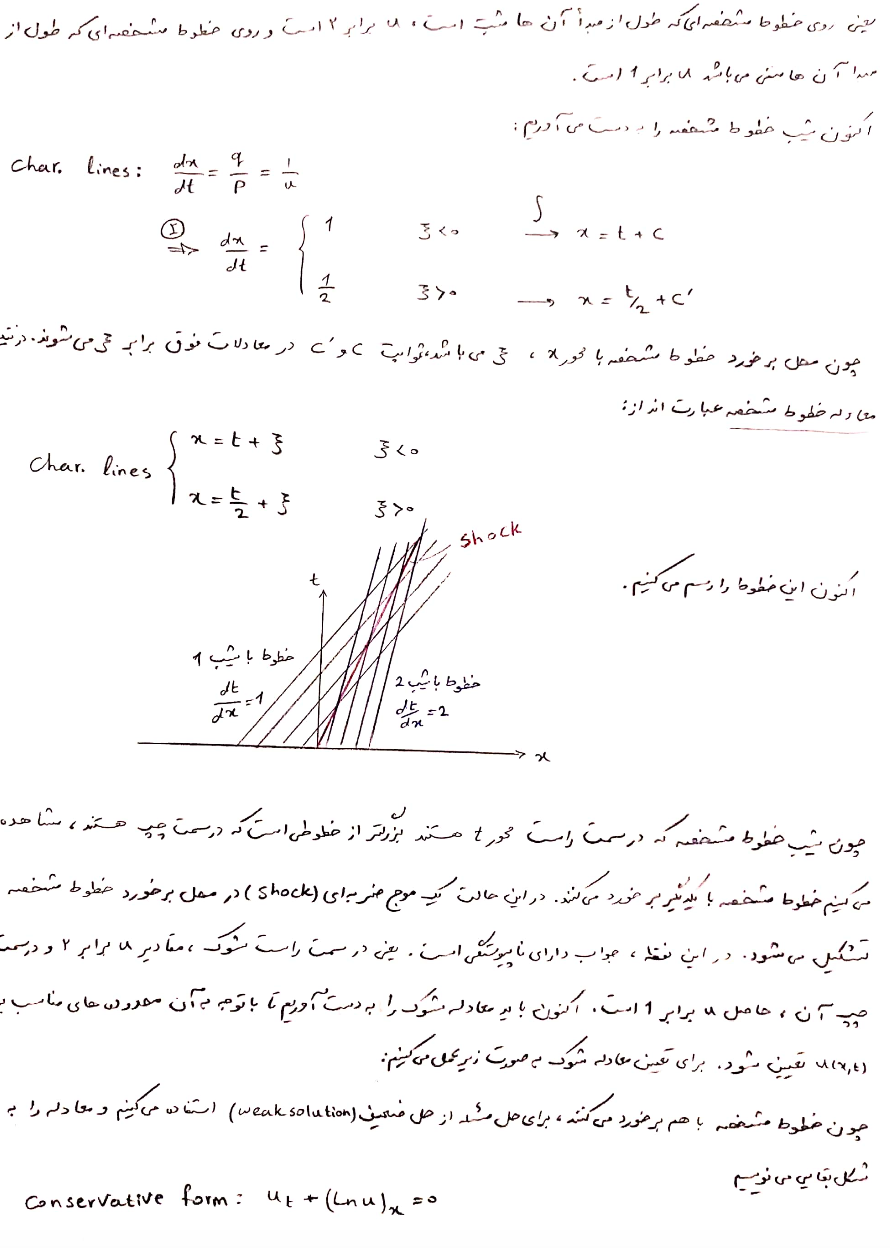 یعنی روی خطوط مشخصه‌ای که طول از مبدأ آن ها مثبت است، u برابر ۲ است و روی خطوط مشخصه‌ای که طول از
مبدا آن ها منفی می باشد u برابر 1 است.
اکنون شیب خطوط مشخصه را به دست می آوریم:
Char. lines: dx/dt = q/p = 1/u
Ⓘ ⇒ dx/dt = { 1 ξ<0 ∫→ x = t + c
1/2 ξ>0 → x = t/2 + c'
چون محل برخورد خطوط مشخصه با محور x، ξ می باشد، ثوابت c و c' در معادلات فوق برابر ξ می شوند. در
معادله خطوط مشخصه عبارت اند از:
Char. lines { x = t + ξ ξ<0
x = t/2 + ξ ξ>0
shock
اکنون این خطوط را رسم می کنیم.
t
خطوط با شیب 1
dt/dx = 1
خطوط با شیب 2
dt/dx = 2
x
چون شیب خطوط مشخصه که در سمت راست محور t هستند بزرگتر از خطوطی است که در سمت چپ هستند، مشاهده
می کنیم خطوط مشخصه با یکدیگر برخورد می کنند. در این حالت یک موج ضربه ای (shock) در محل برخورد خطوط مشخصه
تشکیل می شود. در این نقطه، جواب دارای ناپیوستگی است. یعنی در سمت راست شوک، مقادیر u برابر ۲ و در سمت
چپ آن، حاصل u برابر 1 است. اکنون باید معادله شوک را به دست آوریم تا با توجه به آن محدوده های مناسب
u(x,t) تعیین شود. برای تعیین معادله شوک به صورت زیر عمل می کنیم:
چون خطوط مشخصه با هم برخورد می کنند، برای حل مسئله از حل ضعیف (weak solution) استفاده می کنیم و معادله را به
شکل بقایی می نویسیم
Conservative form: u_t + (Ln u)_x = 0